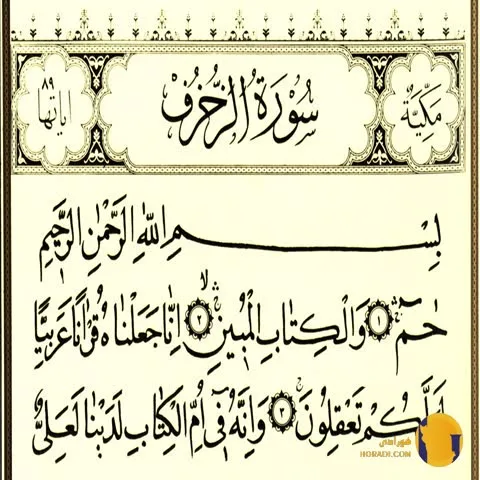 مَكِّيَّةٌ
سُورَةُ الزُّخْرُفِ
اٰيَاتُهَا ٨٩
بِسْمِ اللّٰهِ الرَّحْمٰنِ الرَّحٖيمِ
حٰمٓ ﴿١﴾ وَالْكِتَابِ الْمُبٖينِ ﴿٢﴾ اِنَّا جَعَلْنَاهُ قُرْاٰنًا عَرَبِيًّا
لَعَلَّكُمْ تَعْقِلُونَ ﴿٣﴾ وَاِنَّهُ فٖٓى اُمِّ الْكِتَابِ لَدَيْنَا لَعَلِىٌّ
HORADI.COM